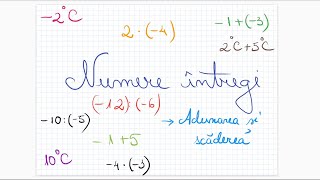 -2°C
2·(-4)
-1+(-3)
2°C+5°C
Numere întregi
(-12)(-6)
-10:(-5)
→ Adunarea și
scăderea
-1+5
10°C
-4·(-3)